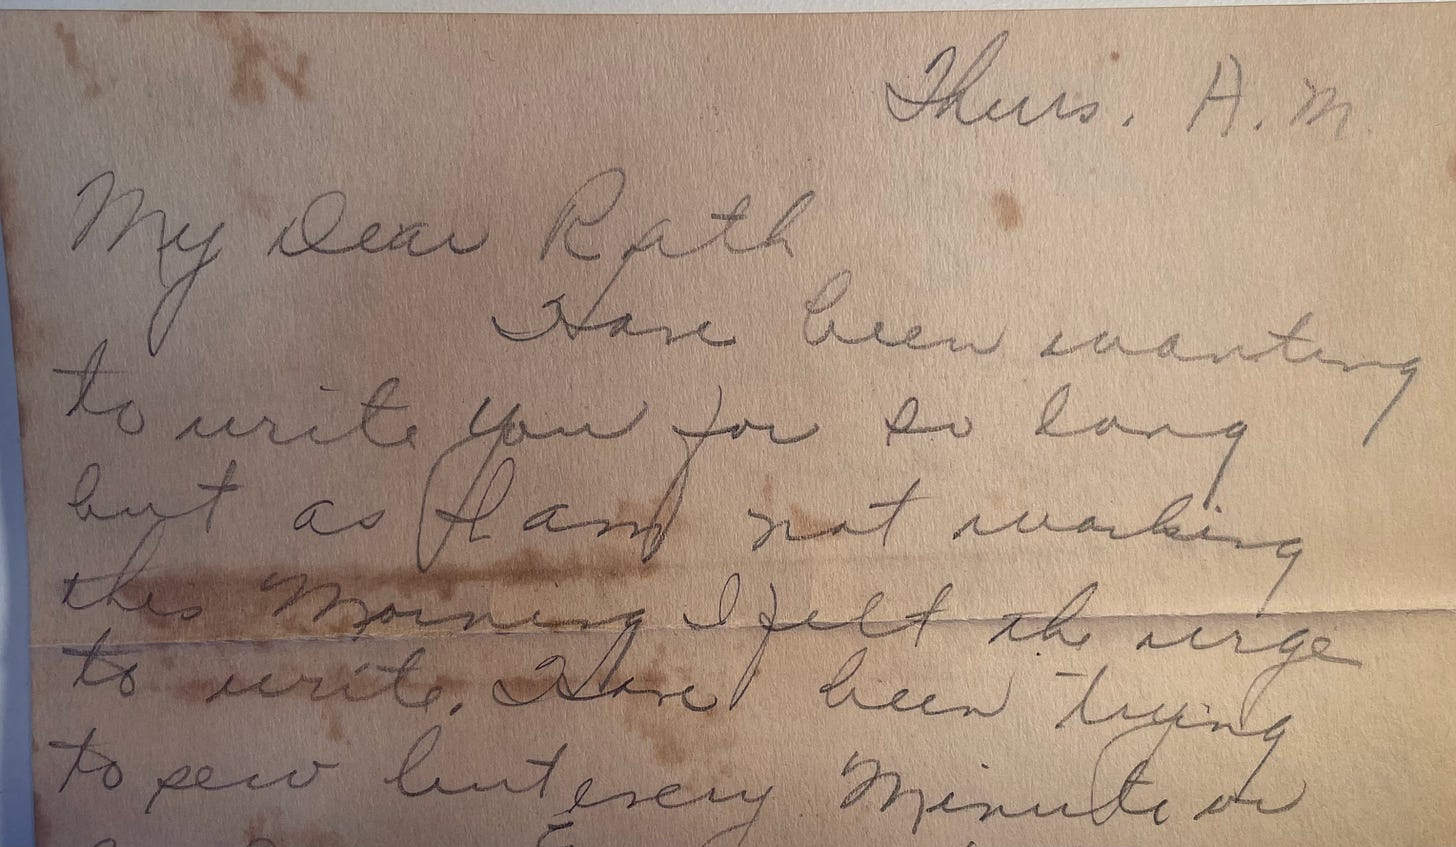 Thurs. A.M.
My Dear Ruth
Have been wanting
to write you for so long
but as I am not working
this Morning I felt the urge
to write. Have been trying
to sew but every Minute or